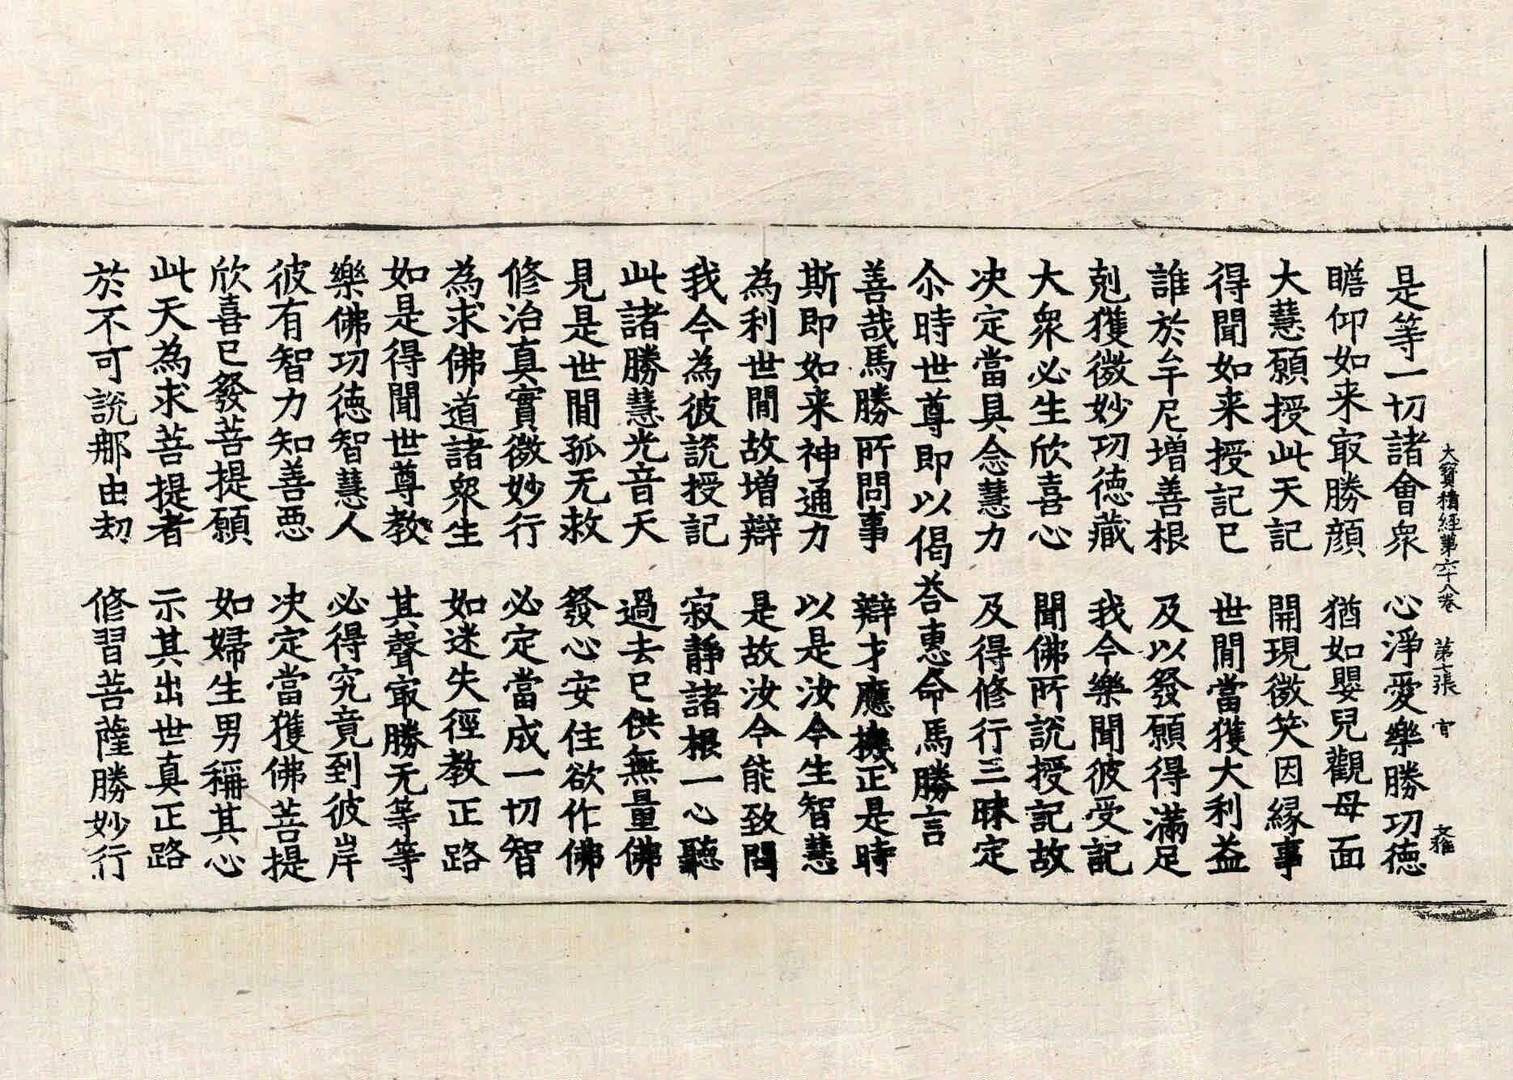 大寶積經第六十八卷　第七張　官
是等一切諸會衆　心淨愛樂勝功徳
瞻仰如来㝡勝顔　猶如嬰兒觀母面
大慧願授此天記　開現微笑因縁事
得聞如来授記已　世閒當獲大利益
誰於牟尼増善根　及以發願得滿足
剋獲微妙功徳藏　我今樂聞彼受記
大衆必生欣喜心　聞佛所說授記故
决定當具念慧力　及得修行三昧定
尒時世尊即以偈荅惠命馬勝言
善哉馬勝所問事　辯才應機正是時
斯即如来神通力　以是汝今生智慧
為利世間故増辯　是故汝今能致問
我今為彼說授記　寂靜諸根一心聽
此諸勝慧光音天　過去已供無量佛
見是世間孤无救　發心安住欲作佛
修治真實微妙行　必定當成一切智
為求佛道諸衆生　如迷失徑教正路
如是得聞世尊教　其聲㝡勝无等等
樂佛功徳智慧人　必得究竟到彼岸
彼有智力知善惡　决定當獲佛菩提
欣喜已發菩提願　如婦生男稱其心
此天為求菩提者　示其出世真正路
於不可說那由劫　修習菩薩勝妙行